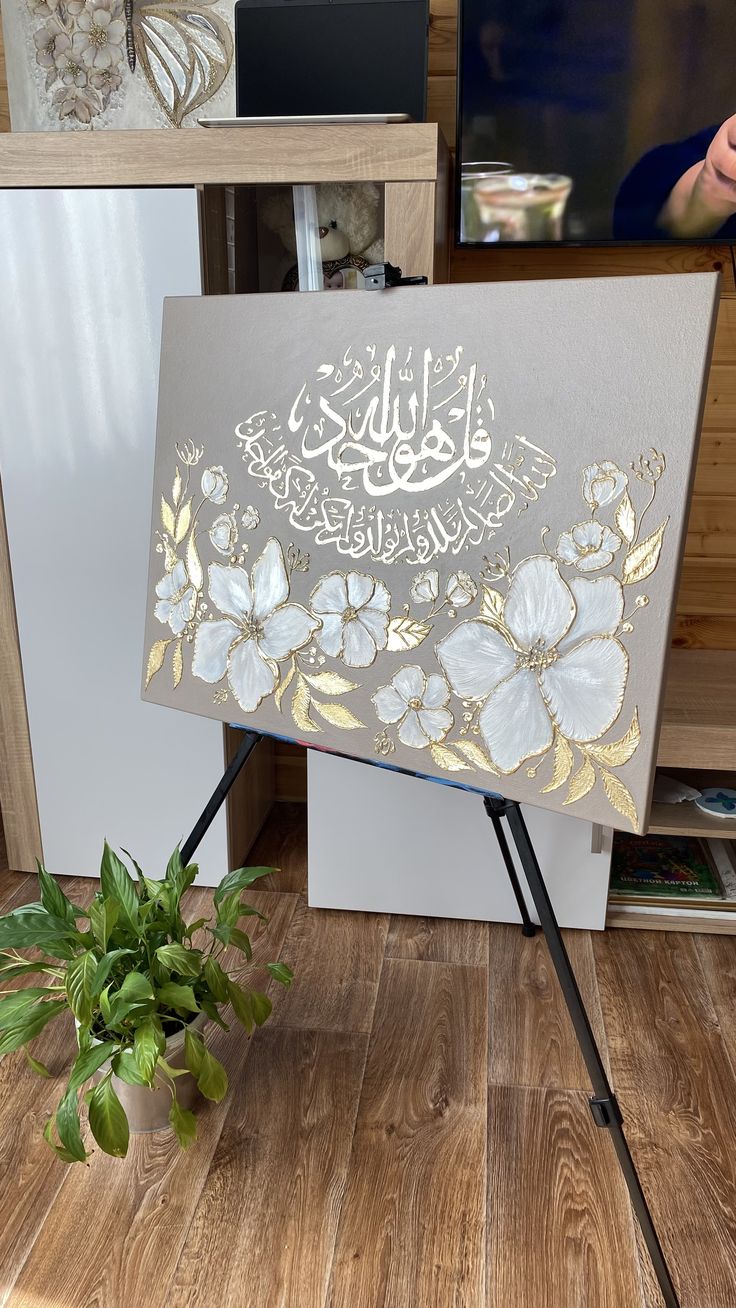 قل هو الله أحد
الله الصمد لم يلد ولم يولد ولم يكن له كفوا أحد
ЦВЕТНОЙ КАРТОН